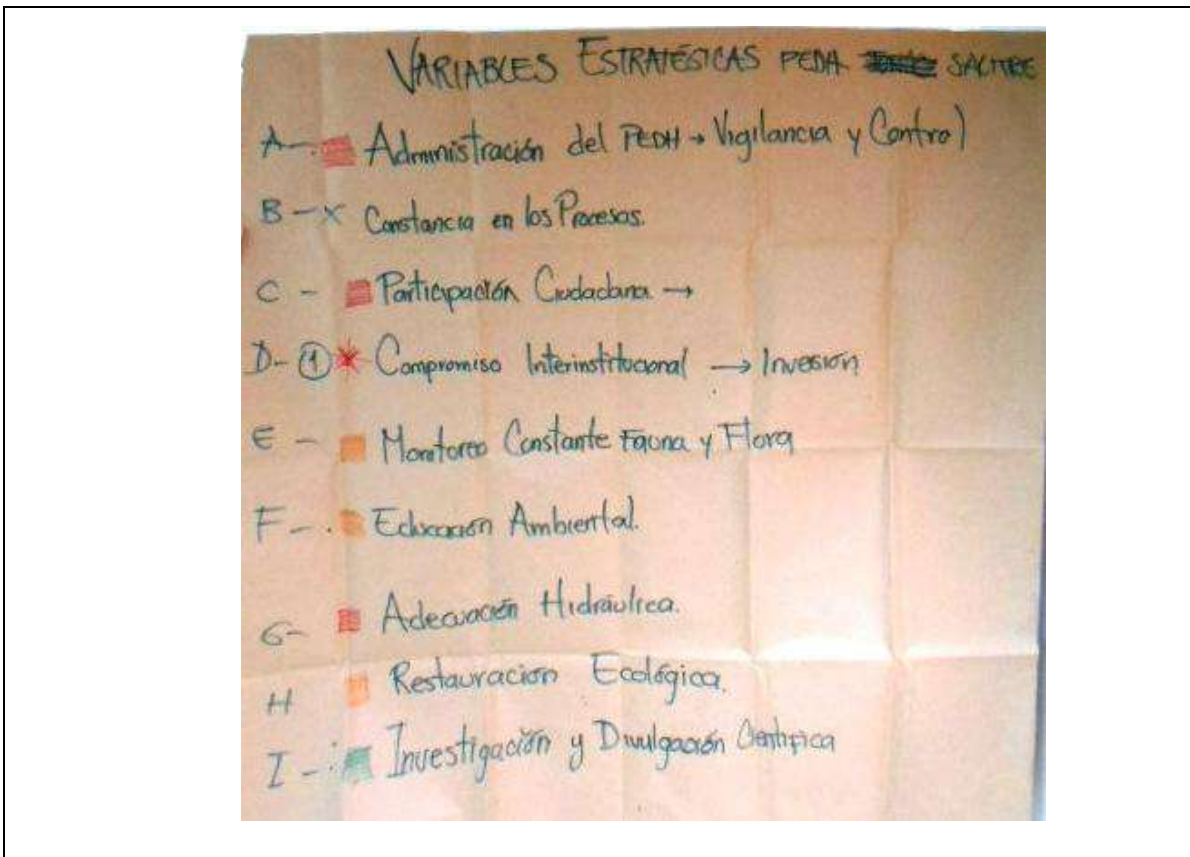 VARIABLES ESTRATÉGICAS PEDH
A- Administración del PEDH → Vigilancia y Control
B - x Constancia en los Procesos.
C - Participación Ciudadana →
D- ① * Compromiso Interinstitucional → Inversión
E - Monitoreo Constante Fauna y Flora
F - . Educación Ambiental.
G- Adecuación Hidráulica.
H Restauración Ecológica.
I - Investigación y Divulgación Científica